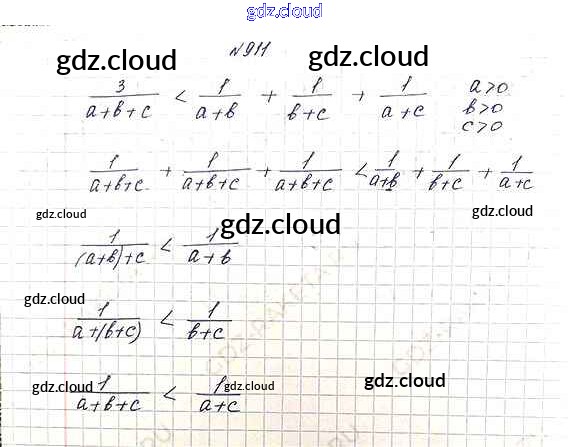 gdz.cloud
№911
gdz.cloud gdz.cloud
3/(a+b+c) < 1/(a+b) + 1/(b+c) + 1/(a+c) a>0
b>0
c>0
1/(a+b+c) + 1/(a+b+c) + 1/(a+b+c) < 1/(a+b) + 1/(b+c) + 1/(a+c)
gdz.cloud gdz.cloud gdz.cloud
1/((a+b)+c) < 1/(a+b)
gdz.cloud
1/(a+(b+c)) < 1/(b+c)
gdz.cloud gdz.cloud gdz.cloud
1/(a+b+c) < 1/(a+c)